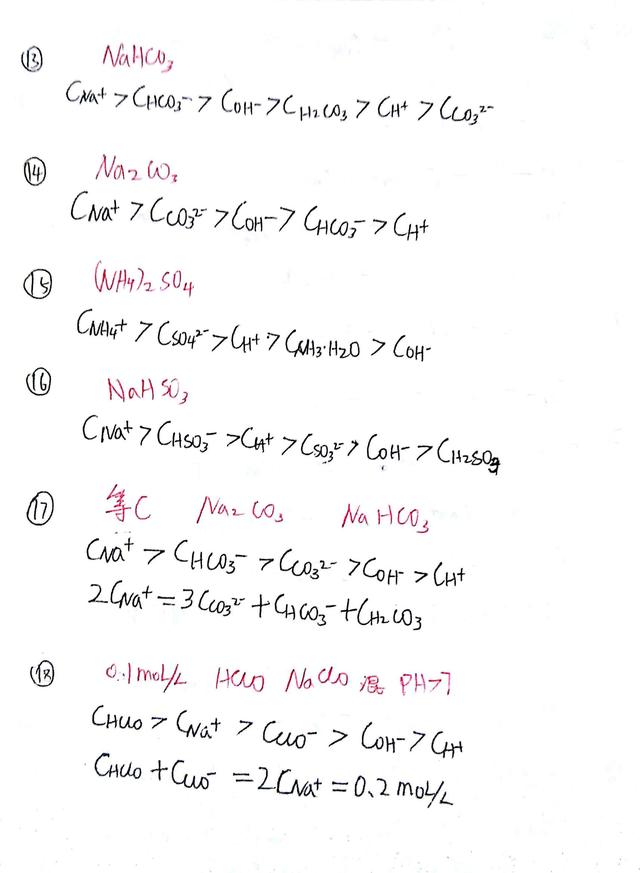 ⑬ NaHCO₃
CNa⁺ > CHCO₃⁻ > COH⁻ > CH₂CO₃ > CH⁺ > CCO₃²⁻
⑭ Na₂CO₃
CNa⁺ > CCO₃²⁻ > COH⁻ > CHCO₃⁻ > CH⁺
⑮ (NH₄)₂SO₄
CNH₄⁺ > CSO₄²⁻ > CH⁺ > CNH₃·H₂O > COH⁻
⑯ NaHSO₃
CNa⁺ > CHSO₃⁻ > CH⁺ > CSO₃²⁻ > COH⁻ > CH₂SO₃
⑰ 等C Na₂CO₃ NaHCO₃
CNa⁺ > CHCO₃⁻ > CCO₃²⁻ > COH⁻ > CH⁺
2CNa⁺ = 3CCO₃²⁻ + CHCO₃⁻ + CH₂CO₃
⑱ 0.1mol/L HClO NaClO 混 PH>7
CHClO > CNa⁺ > CClO⁻ > COH⁻ > CH⁺
CHClO + CClO⁻ = 2CNa⁺ = 0.2mol/L